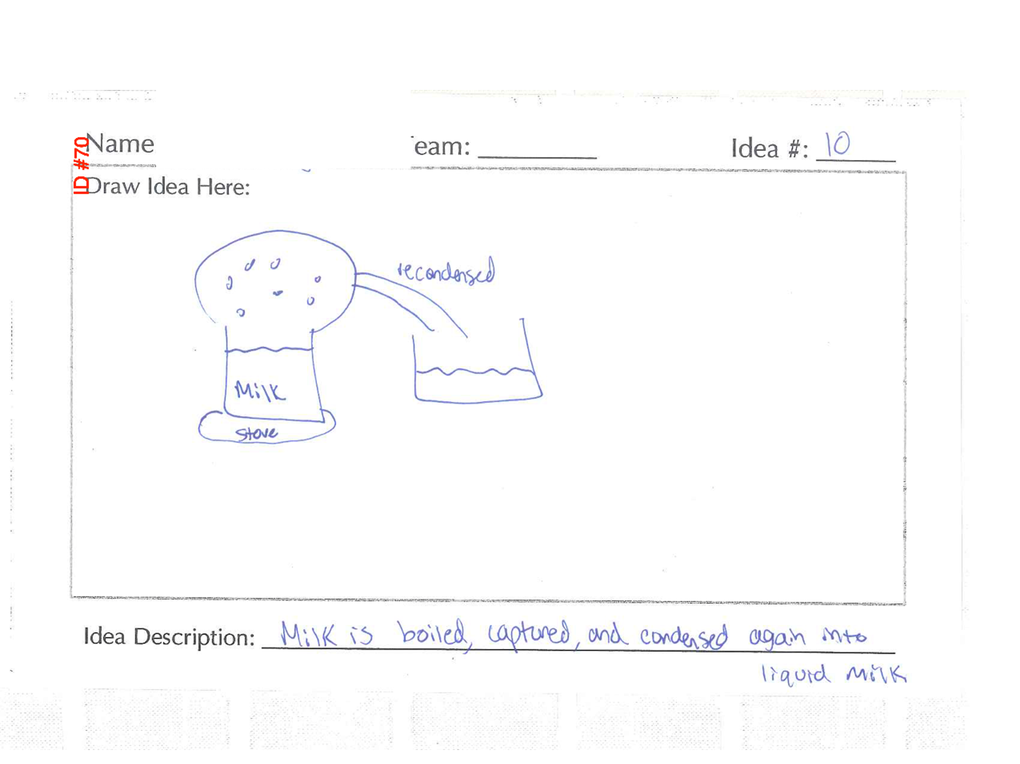 ID #70
Name
eam:
Idea #: 10
Draw Idea Here:
recondensed
Milk
stove
Idea Description: Milk is boiled, captured, and condensed again into
liquid milk